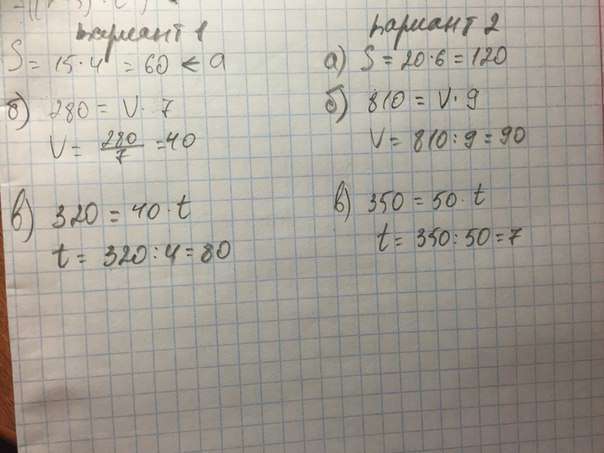 Вариант 1
S = 15 · 4 = 60 < a
б) 280 = V · 7
V = 280/7 = 40
в) 320 = 40 · t
t = 320 : 4 = 80
Вариант 2
а) S = 20 · 6 = 120
б) 810 = V · 9
V = 810 : 9 = 90
в) 350 = 50 · t
t = 350 : 50 = 7